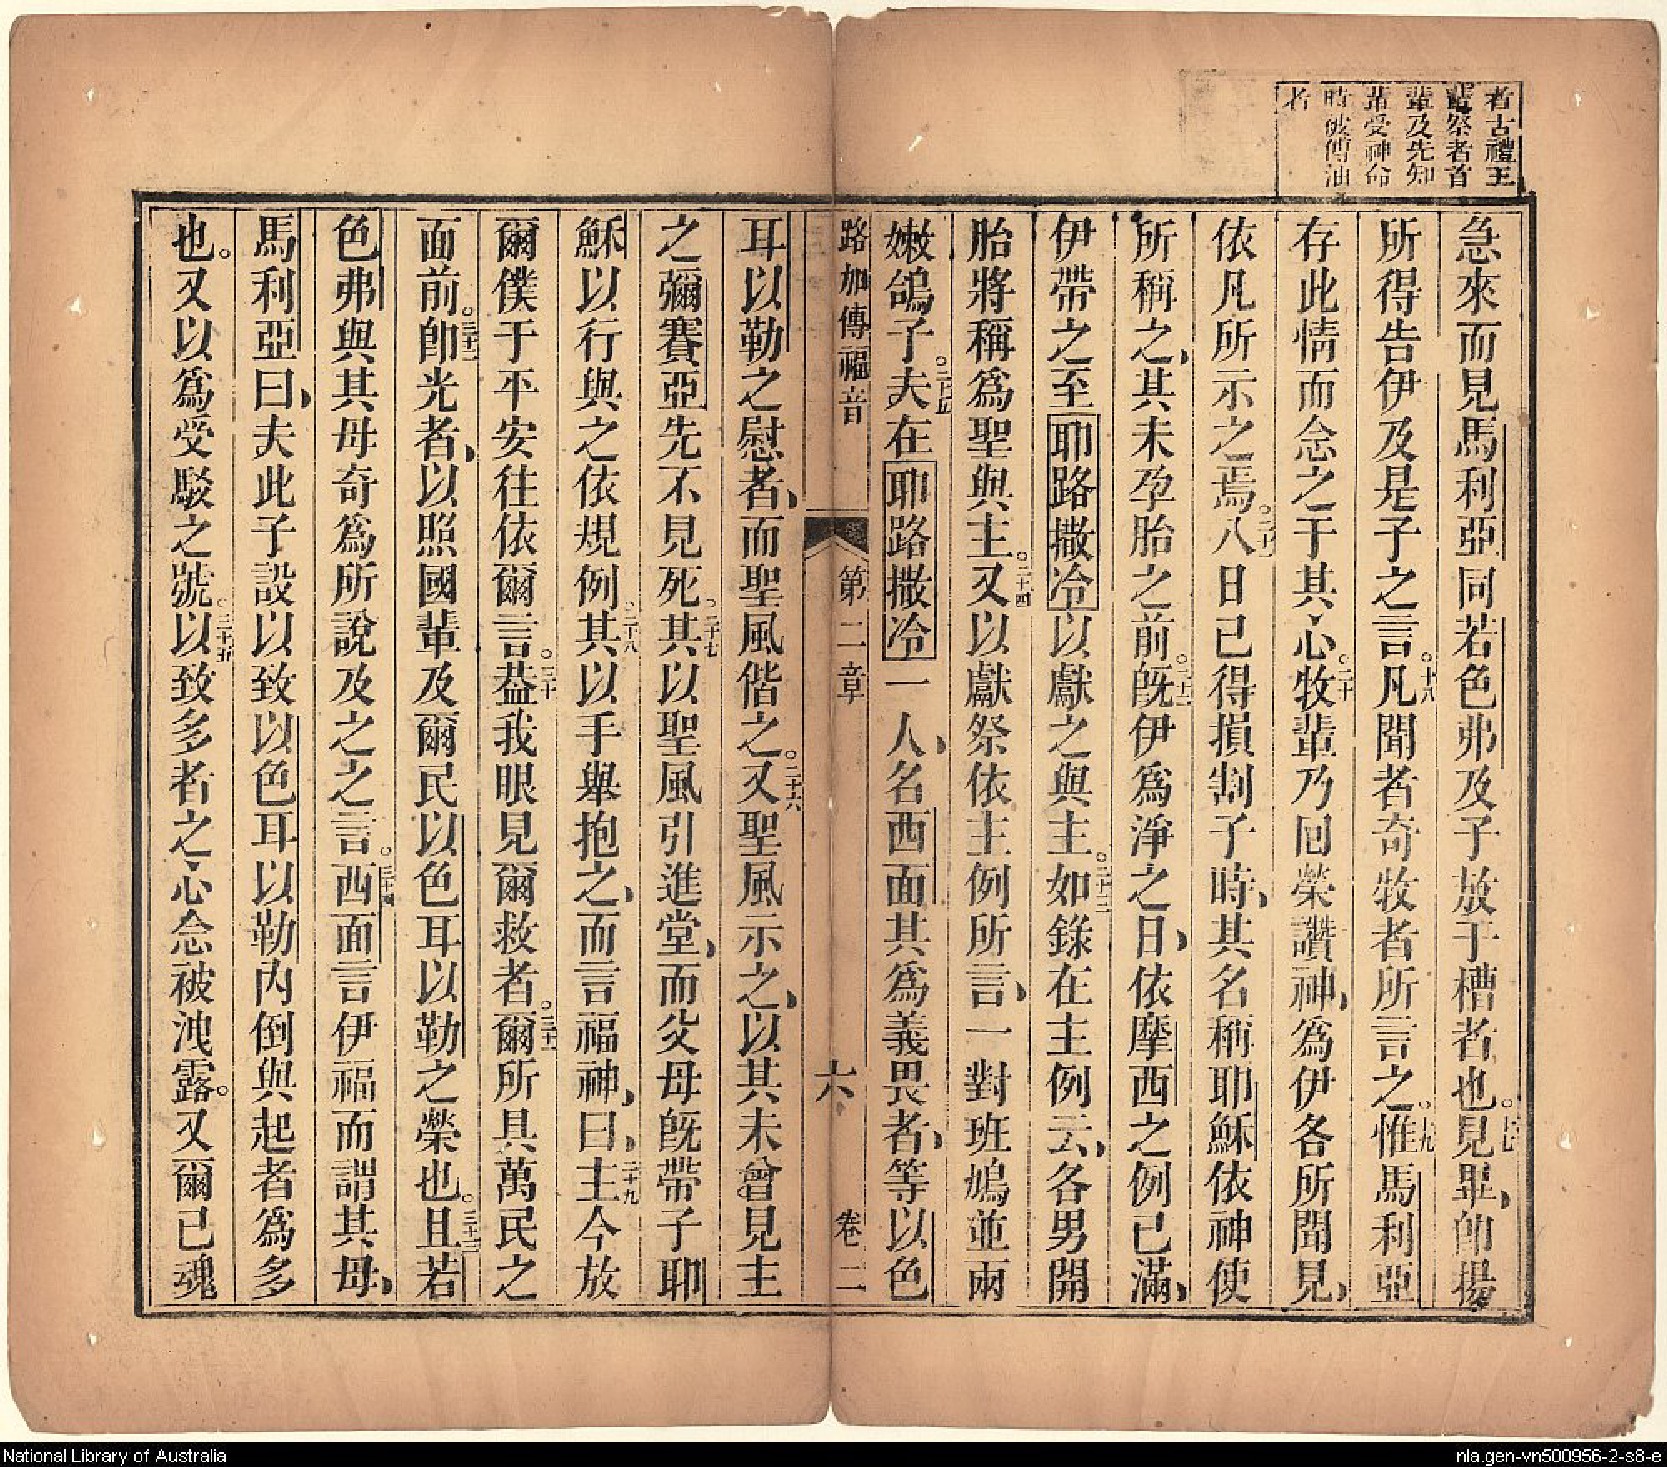 者古禮王
輩祭者首
輩及先知
輩受神命
時故傅油
者
急來而見馬利亞同若色弗及子放于槽者也。十七見畢即揚
所得告伊及是子之言。十八凡聞者奇牧者所言之。十九惟馬利亞
存此情而念之于其心。二十牧輩乃回榮讚神、為伊各所聞見、
依凡所示之焉。二十一八日已得損割子時、其名稱耶穌依神使
所稱之、其未孕胎之前。二十二旣伊為淨之日、依摩西之例已滿、
伊帶之至耶路撒冷以獻之與主。二十三如錄在主例云、各男開
胎將稱為聖與主。二十四又以獻祭依主例所言、一對班鳩並兩
嫩鴿子。二十五夫在耶路撒冷一人、名西面其為義畏者、等以色
路加傳福音 第二章 六 卷二
耳以勒之慰者、而聖風偕之。二十六又聖風示之、以其未曾見主
之彌賽亞先不見死。二十七其以聖風引進堂、而父母旣帶子耶
穌以行與之依規例。二十八其以手舉抱之、而言福神、曰、二十九主今放
爾僕于平安往依爾言。三十葢我眼見爾救者。三十一爾所具萬民之
面前。三十二卽光者、以照國輩及爾民以色耳以勒之榮也。三十三且若
色弗與其母奇為所說及之之言。三十四西面言伊福而謂其母、
馬利亞曰、夫此子設以致以色耳以勒內倒與起者為多
也。又以為受駁之號。三十五以致多者之心念被洩露。又爾已魂
National Library of Australia
nla.gen-vn500956-2-s8-e